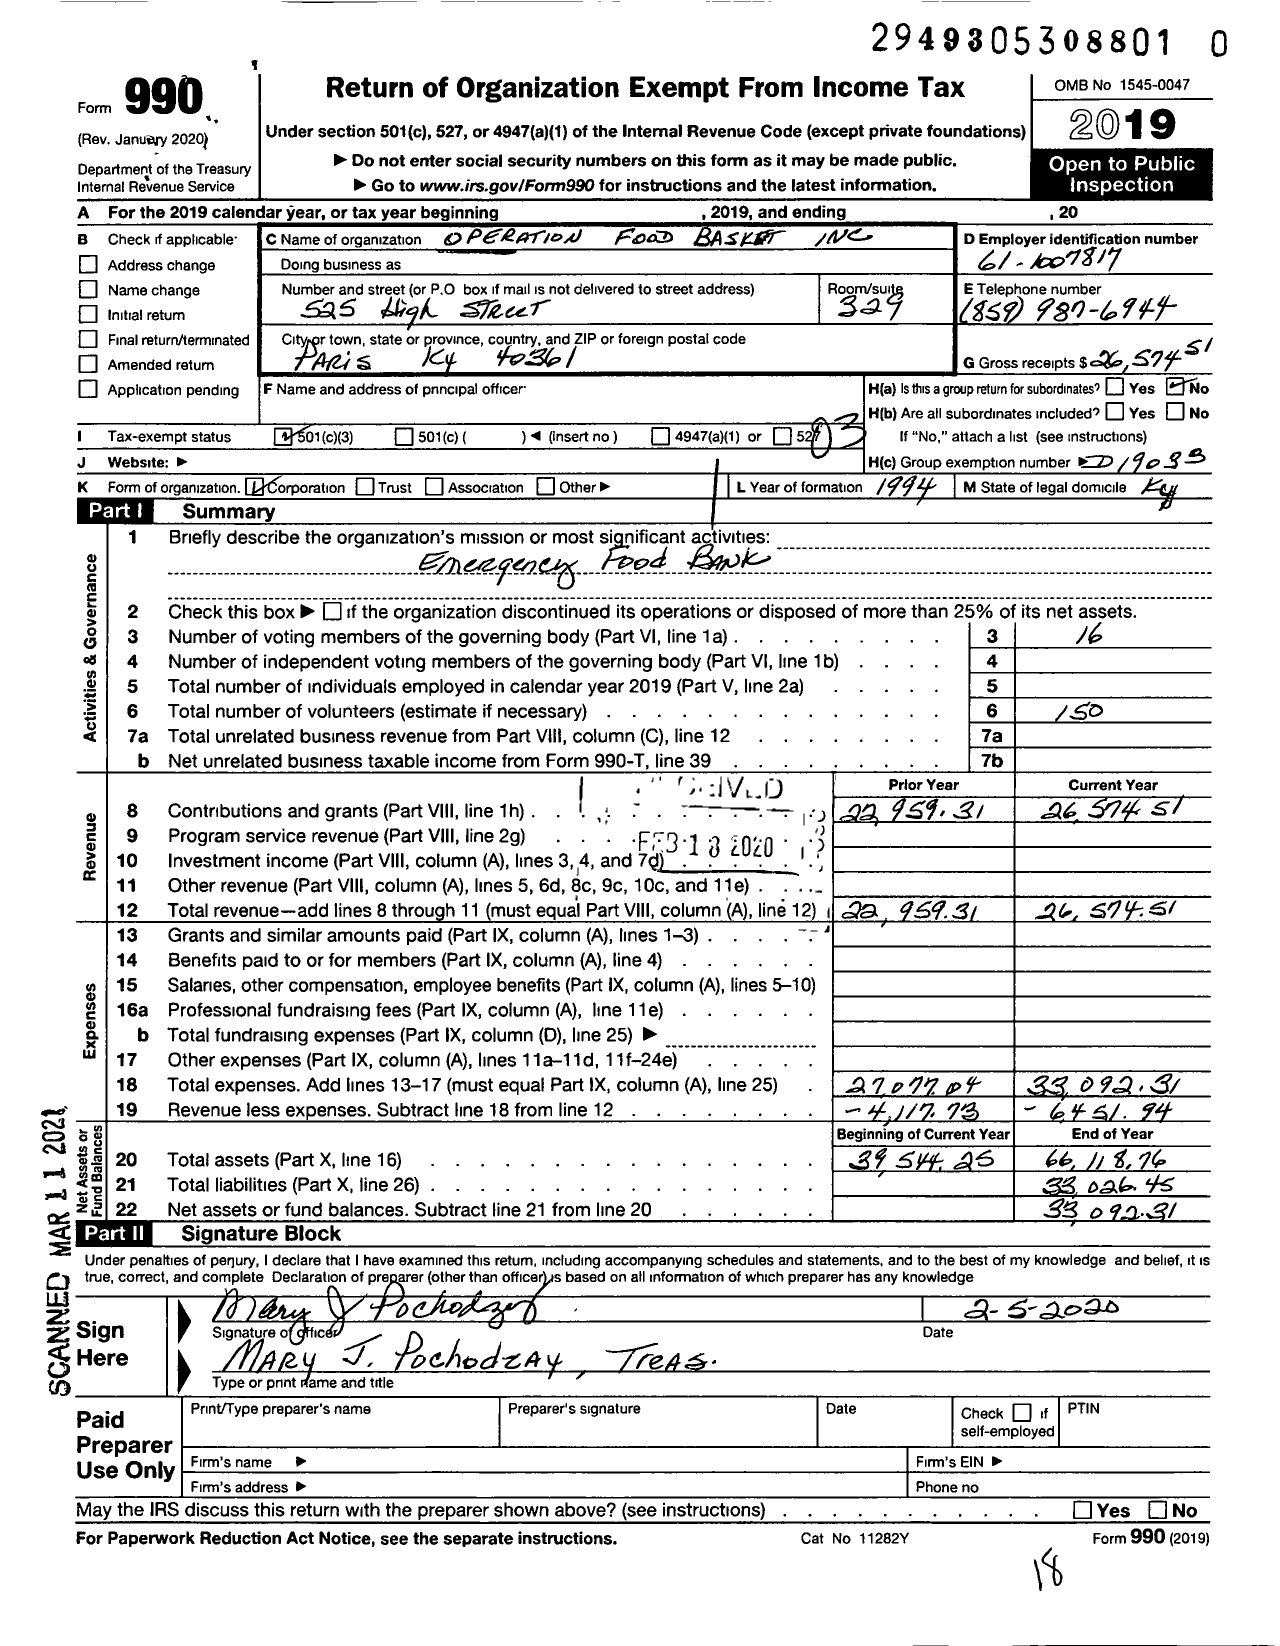 29493053088010
Form 990
(Rev. January 2020)
Department of the Treasury
Internal Revenue Service
Return of Organization Exempt From Income Tax
Under section 501(c), 527, or 4947(a)(1) of the Internal Revenue Code (except private foundations)
▶ Do not enter social security numbers on this form as it may be made public.
▶ Go to www.irs.gov/Form990 for instructions and the latest information.
OMB No 1545-0047
2019
Open to Public
Inspection
A For the 2019 calendar year, or tax year beginning , 2019, and ending , 20
B Check if applicable
Address change
Name change
Initial return
Final return/terminated
Amended return
Application pending
C Name of organization OPERATION FOOD BASKET INC
Doing business as
Number and street (or P.O box if mail is not delivered to street address) Room/suite
525 High Street 329
City or town, state or province, country, and ZIP or foreign postal code
PARIS Ky 40361
D Employer identification number
61-1007817
E Telephone number
(859) 987-6944
G Gross receipts $ 26,574 51
F Name and address of principal officer
H(a) Is this a group return for subordinates? Yes No
H(b) Are all subordinates included? Yes No
If "No," attach a list (see instructions)
H(c) Group exemption number ▶
I Tax-exempt status 501(c)(3) 501(c) ( ) ◀ (insert no) 4947(a)(1) or 527 03
J Website: ▶
K Form of organization. Corporation Trust Association Other ▶
L Year of formation 1994
M State of legal domicile Ky
Part I Summary
Activities & Governance
1 Briefly describe the organization's mission or most significant activities:
Emergency Food Bank
2 Check this box ▶ if the organization discontinued its operations or disposed of more than 25% of its net assets.
3 Number of voting members of the governing body (Part VI, line 1a) 3 16
4 Number of independent voting members of the governing body (Part VI, line 1b) 4
5 Total number of individuals employed in calendar year 2019 (Part V, line 2a) 5
6 Total number of volunteers (estimate if necessary) 6 150
7a Total unrelated business revenue from Part VIII, column (C), line 12 7a
b Net unrelated business taxable income from Form 990-T, line 39 7b
Prior Year Current Year
Revenue
8 Contributions and grants (Part VIII, line 1h) 22,959.31 26,574.51
9 Program service revenue (Part VIII, line 2g)
FEB 18 2020
10 Investment income (Part VIII, column (A), lines 3, 4, and 7d)
11 Other revenue (Part VIII, column (A), lines 5, 6d, 8c, 9c, 10c, and 11e)
12 Total revenue—add lines 8 through 11 (must equal Part VIII, column (A), line 12) 22,959.31 26,574.51
Expenses
13 Grants and similar amounts paid (Part IX, column (A), lines 1–3)
14 Benefits paid to or for members (Part IX, column (A), line 4)
15 Salaries, other compensation, employee benefits (Part IX, column (A), lines 5–10)
16a Professional fundraising fees (Part IX, column (A), line 11e)
b Total fundraising expenses (Part IX, column (D), line 25) ▶
17 Other expenses (Part IX, column (A), lines 11a–11d, 11f–24e)
18 Total expenses. Add lines 13–17 (must equal Part IX, column (A), line 25) 27,077.04 33,092.31
19 Revenue less expenses. Subtract line 18 from line 12 -4,117.73 -6451.94
Beginning of Current Year End of Year
Net Assets or Fund Balances
20 Total assets (Part X, line 16) 39,544.25 66,118.76
21 Total liabilities (Part X, line 26) 33,026.45
22 Net assets or fund balances. Subtract line 21 from line 20 33,092.31
SCANNED MAR 11 2021
Part II Signature Block
Under penalties of perjury, I declare that I have examined this return, including accompanying schedules and statements, and to the best of my knowledge and belief, it is
true, correct, and complete Declaration of preparer (other than officer) is based on all information of which preparer has any knowledge
Sign Here
Mary J Pochodzay 2-5-2020
Signature of officer Date
MARY J. POCHODZAY, TREAS.
Type or print name and title
Paid Preparer Use Only
Print/Type preparer's name Preparer's signature Date Check if self-employed PTIN
Firm's name ▶ Firm's EIN ▶
Firm's address ▶ Phone no
May the IRS discuss this return with the preparer shown above? (see instructions) Yes No
For Paperwork Reduction Act Notice, see the separate instructions. Cat No 11282Y Form 990 (2019)
18